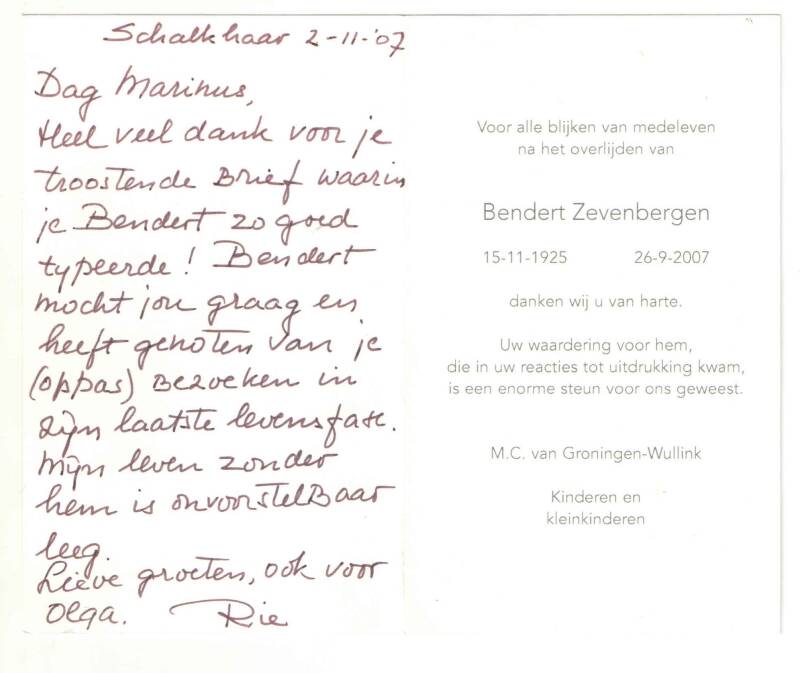 Schalkhaar 2-11-'07
Dag Marinus,
Heel veel dank voor je
troostende Brief waarin
je Bendert zo goed
typeerde! Bendert
mocht jou graag en
heeft genoten van je
(oppas) Bezoeken in
zijn laatste levensfase.
Mijn leven zonder
hem is onvoorstelBaar
leeg.
Lieve groeten, ook voor
Olga. Rie
Voor alle blijken van medeleven
na het overlijden van
Bendert Zevenbergen
15-11-1925 26-9-2007
danken wij u van harte.
Uw waardering voor hem,
die in uw reacties tot uitdrukking kwam,
is een enorme steun voor ons geweest.
M.C. van Groningen-Wullink
Kinderen en
kleinkinderen